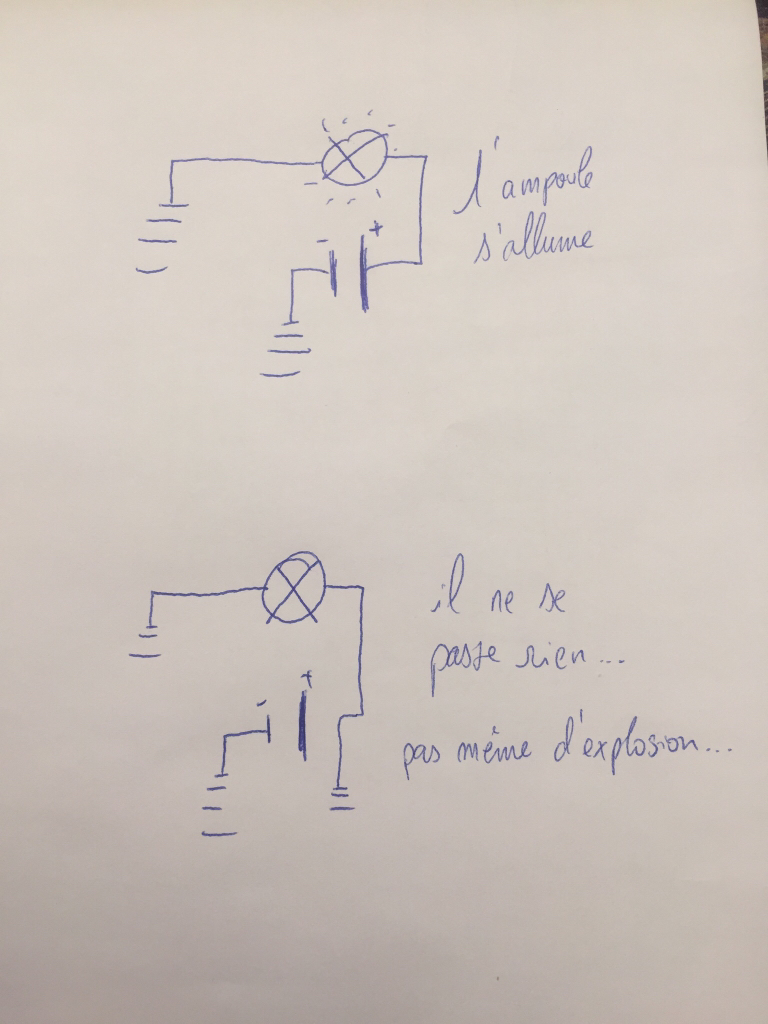 l'ampoule
s'allume
- +
il ne se
passe rien...
- +
pas même d'explosion...